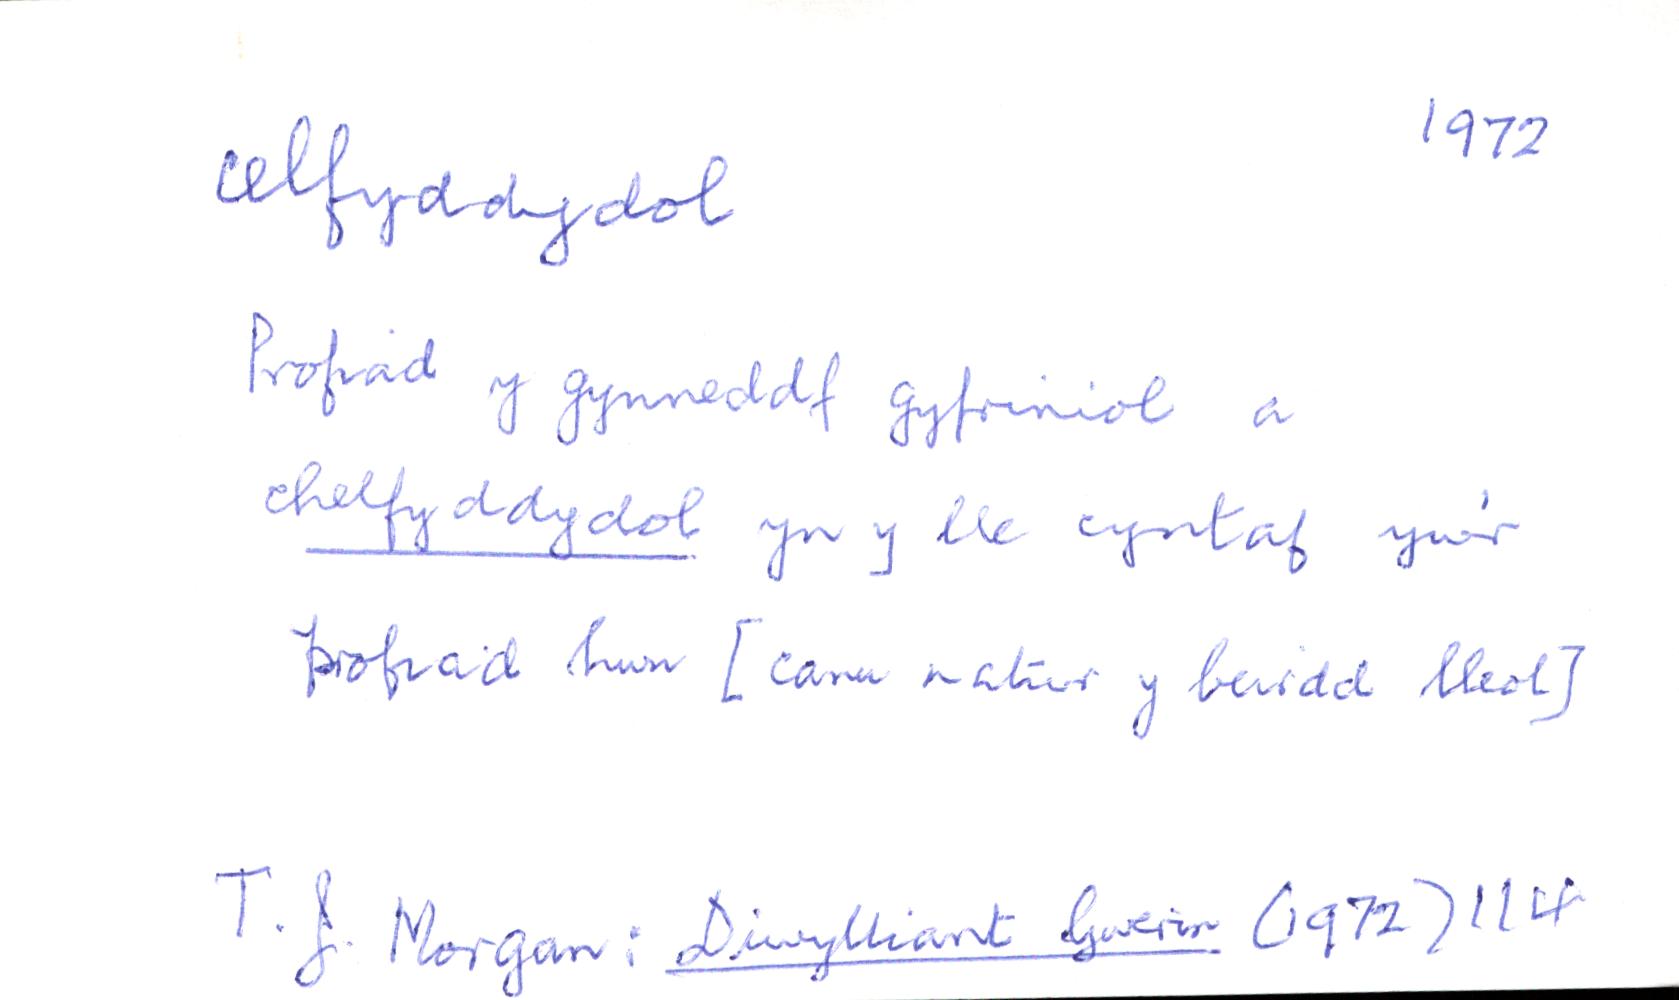 celfyddydol
1972
Profiad y gynneddf gyfriniol a
chelfyddydol yn y lle cyntaf yw'r
profiad hwn [canu natur y beirdd lleol]
T. J. Morgan: Diwylliant Gwerin (1972) 114